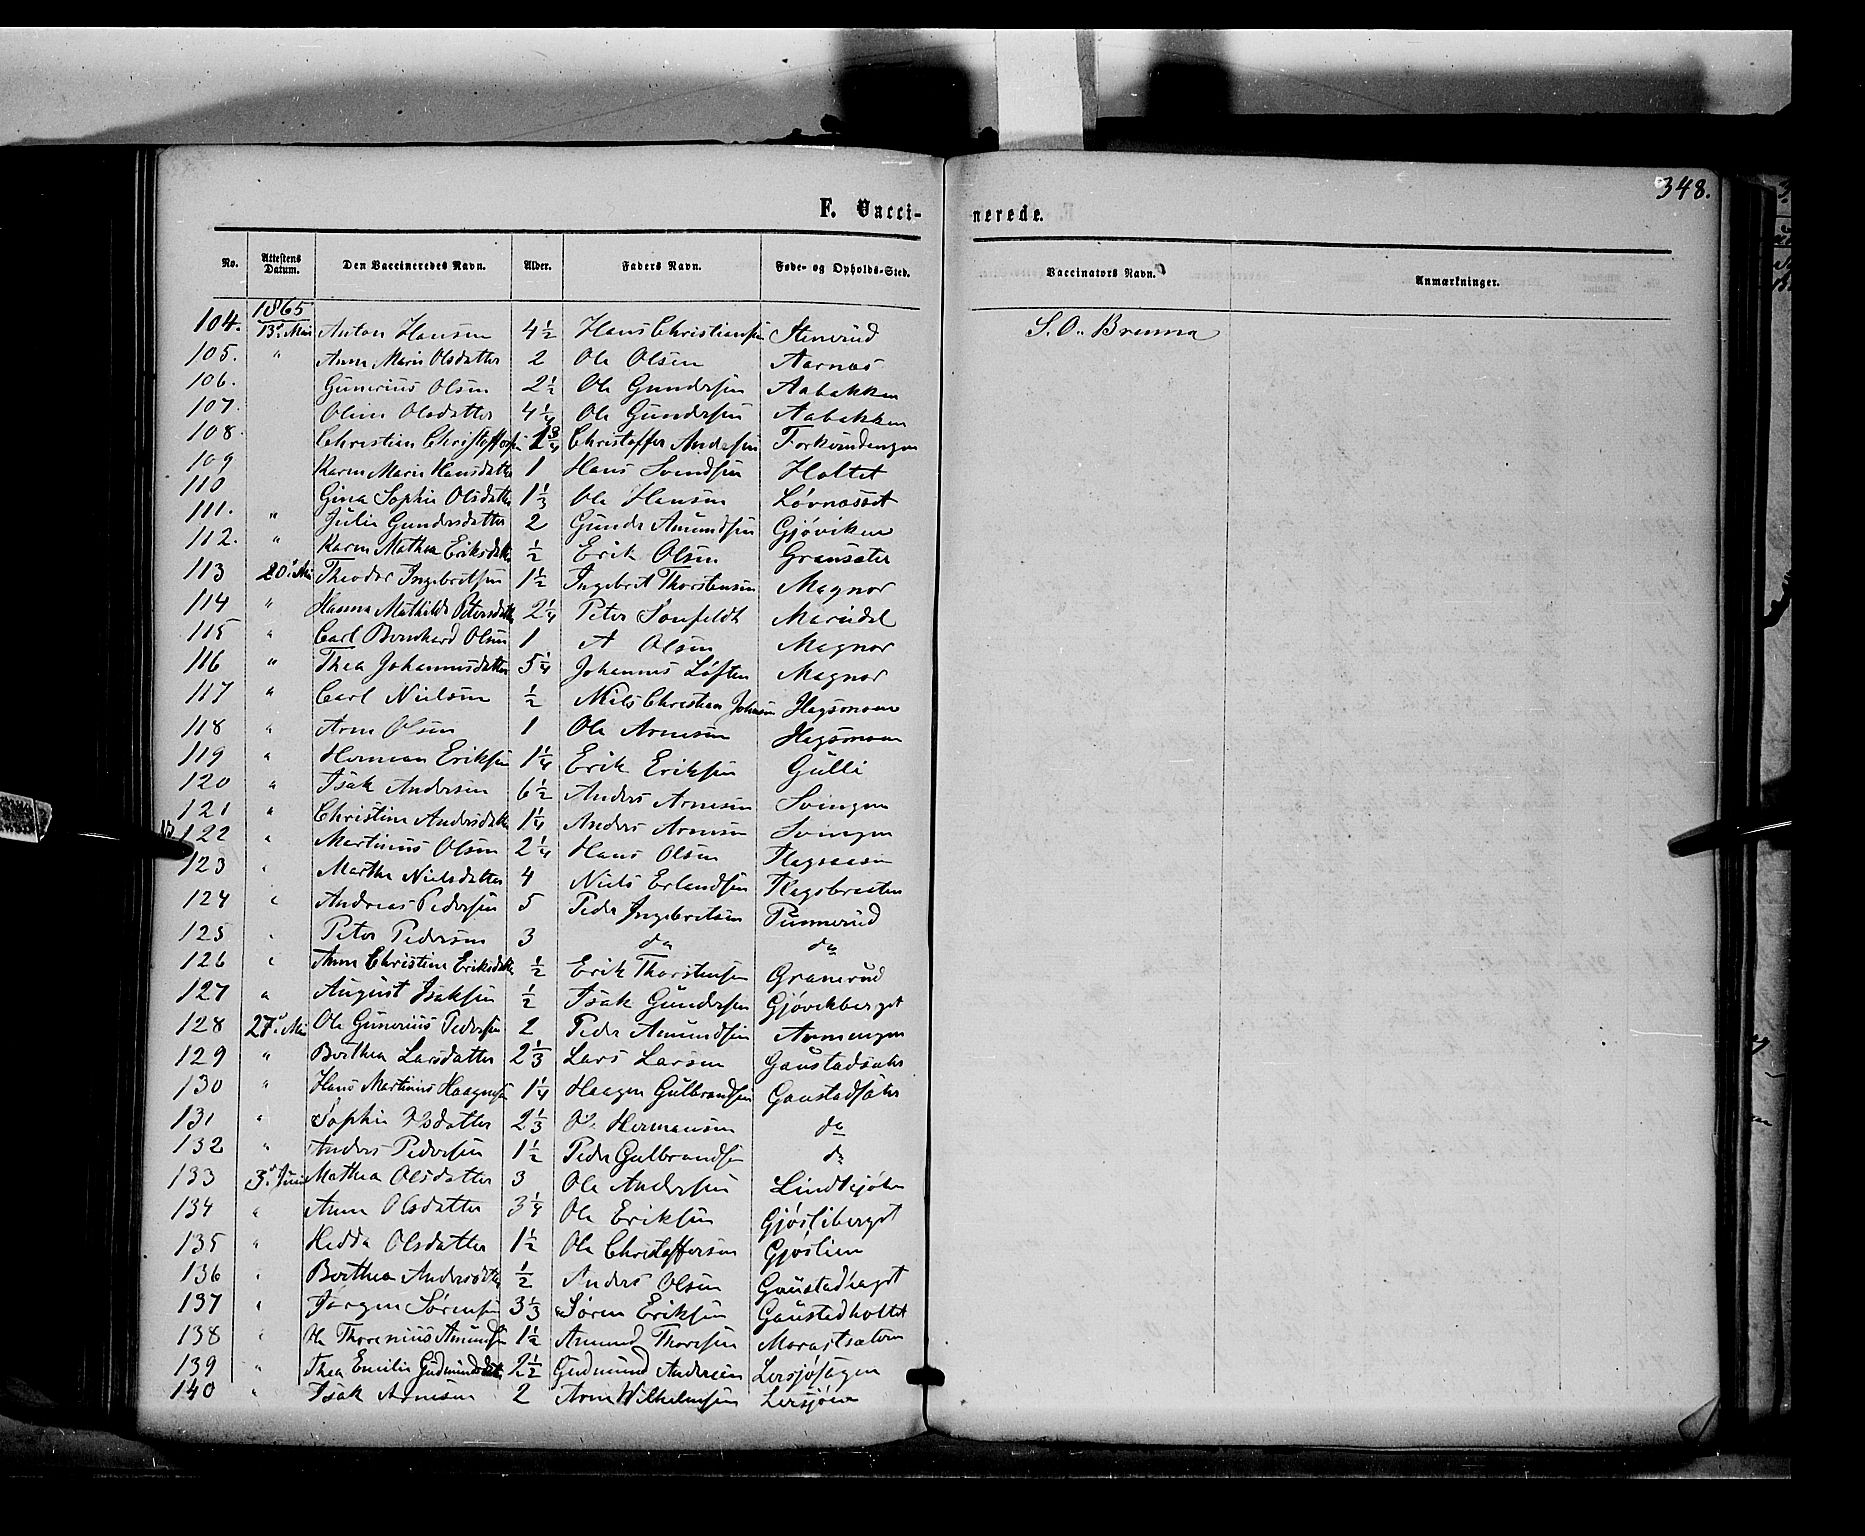 348.
F. Vacci-
nerede.
No. Attestens Datum. Den Vaccineredes Navn. Alder. Faders Navn. Føde- og Opholds-Sted. Vaccinators Navn. Anmærkninger.
1865
104. 13de Mai Anton Hansen 4 1/2 Hans Christiansen Stenerud S. O. Brenna
105. " Anne Marie Olsdatter 2 Ole Olsen Aarnæs
106. Gunerius Olsen 2 1/2 Ole Gundersen Aabakken
107. Oline Olsdatter 4 1/4 Ole Gundersen Aabakken
108. Christian Christoffersen 1 3/4 Christoffer Andersen
109 Karen Marie Hansdatter 1 Hans Svendsen Holtet
110 Gina Sophie Olsdatter 1 1/3 Ole Hansen
111. " Julie Gundersdatter 2 Gunder Amundsen Gjøviken
112. " Karen Mathea Eriksdatter 1/2 Erik Olsen Gransæter
113 20de Mai Theodor Ingebretsen 1 1/2 Ingebret Thorstensen Magnor
114 " Hanna Mathilde Petersdatter 2 1/4 Peter Marüdel
115 " Carl Bernhard Olsen 1 A Olsen Magnor
116 " Thea Johannesdatter 5 1/4 Johannes Løften Magnor
117 " Carl Nielsen 1/2 Niels Christian Johnsen Hagsmoen
118 " Arne Olsen 1 Ole Arnesen Hagsmoen
119 " Herman Eriksen 1 1/4 Erik Eriksen Gulli
120 " Isak Andersen 6 1/2 Anders Arnesen Svingen
121 " Christine Andersdatter 1 1/4 Anders Arnesen Svingen
122 " Martinius Olsen 2 1/4 Hans Olsen
123 " Marthe Nielsdatter 4 Niels Erlandsen Hagsbraaten
124 " Andreas Pedersen 5 Peder Ingebretsen Punnerud
125 " Peter Pedersen 3 do do
126 " Anne Christine Eriksdatter 1/2 Erik Thorstensen Granerud
127 " August Isaksen 1/2 Isak Gundersen Gjøvikberget
128 27de Mai Ole Gunerius Pedersen 2 Peder Amundsen
129 " Berthea Larsdatter 2 1/3 Lars Larsen Gaustadsæter
130 " Hans Martinius Haagensen 1 1/4 Haagen Gulbrandsen Gaustadsæter
131 " Sophie Olsdatter 2 2/3 Ole Hermansen do
132 " Anders Pedersen 1 1/2 Peder Gulbrandsen do
133 3de Juni Mathea Olsdatter 3 Ole Andersen
134 " Anne Olsdatter 3 1/4 Ole Eriksen Gjøsliberget
135 " Hedda Olsdatter 1 1/2 Ole Christoffersen Gjøslien
136 " Berthea Andersdatter 1/2 Anders Olsen Gaustadhaget
137 " Jørgen Sørensen 3 1/3 Søren Eriksen Gaustadholtet
138 " Ole Thorenius Amundsen 1 1/2 Amund Thoresen Morastsæteren
139 " Thea Emilie Gudmundsdatter 2 1/2 Gudmund Andersen Lersjøhagen
140 " Isak Arnesen 2 Arne Wilhelmsen Lersjøen